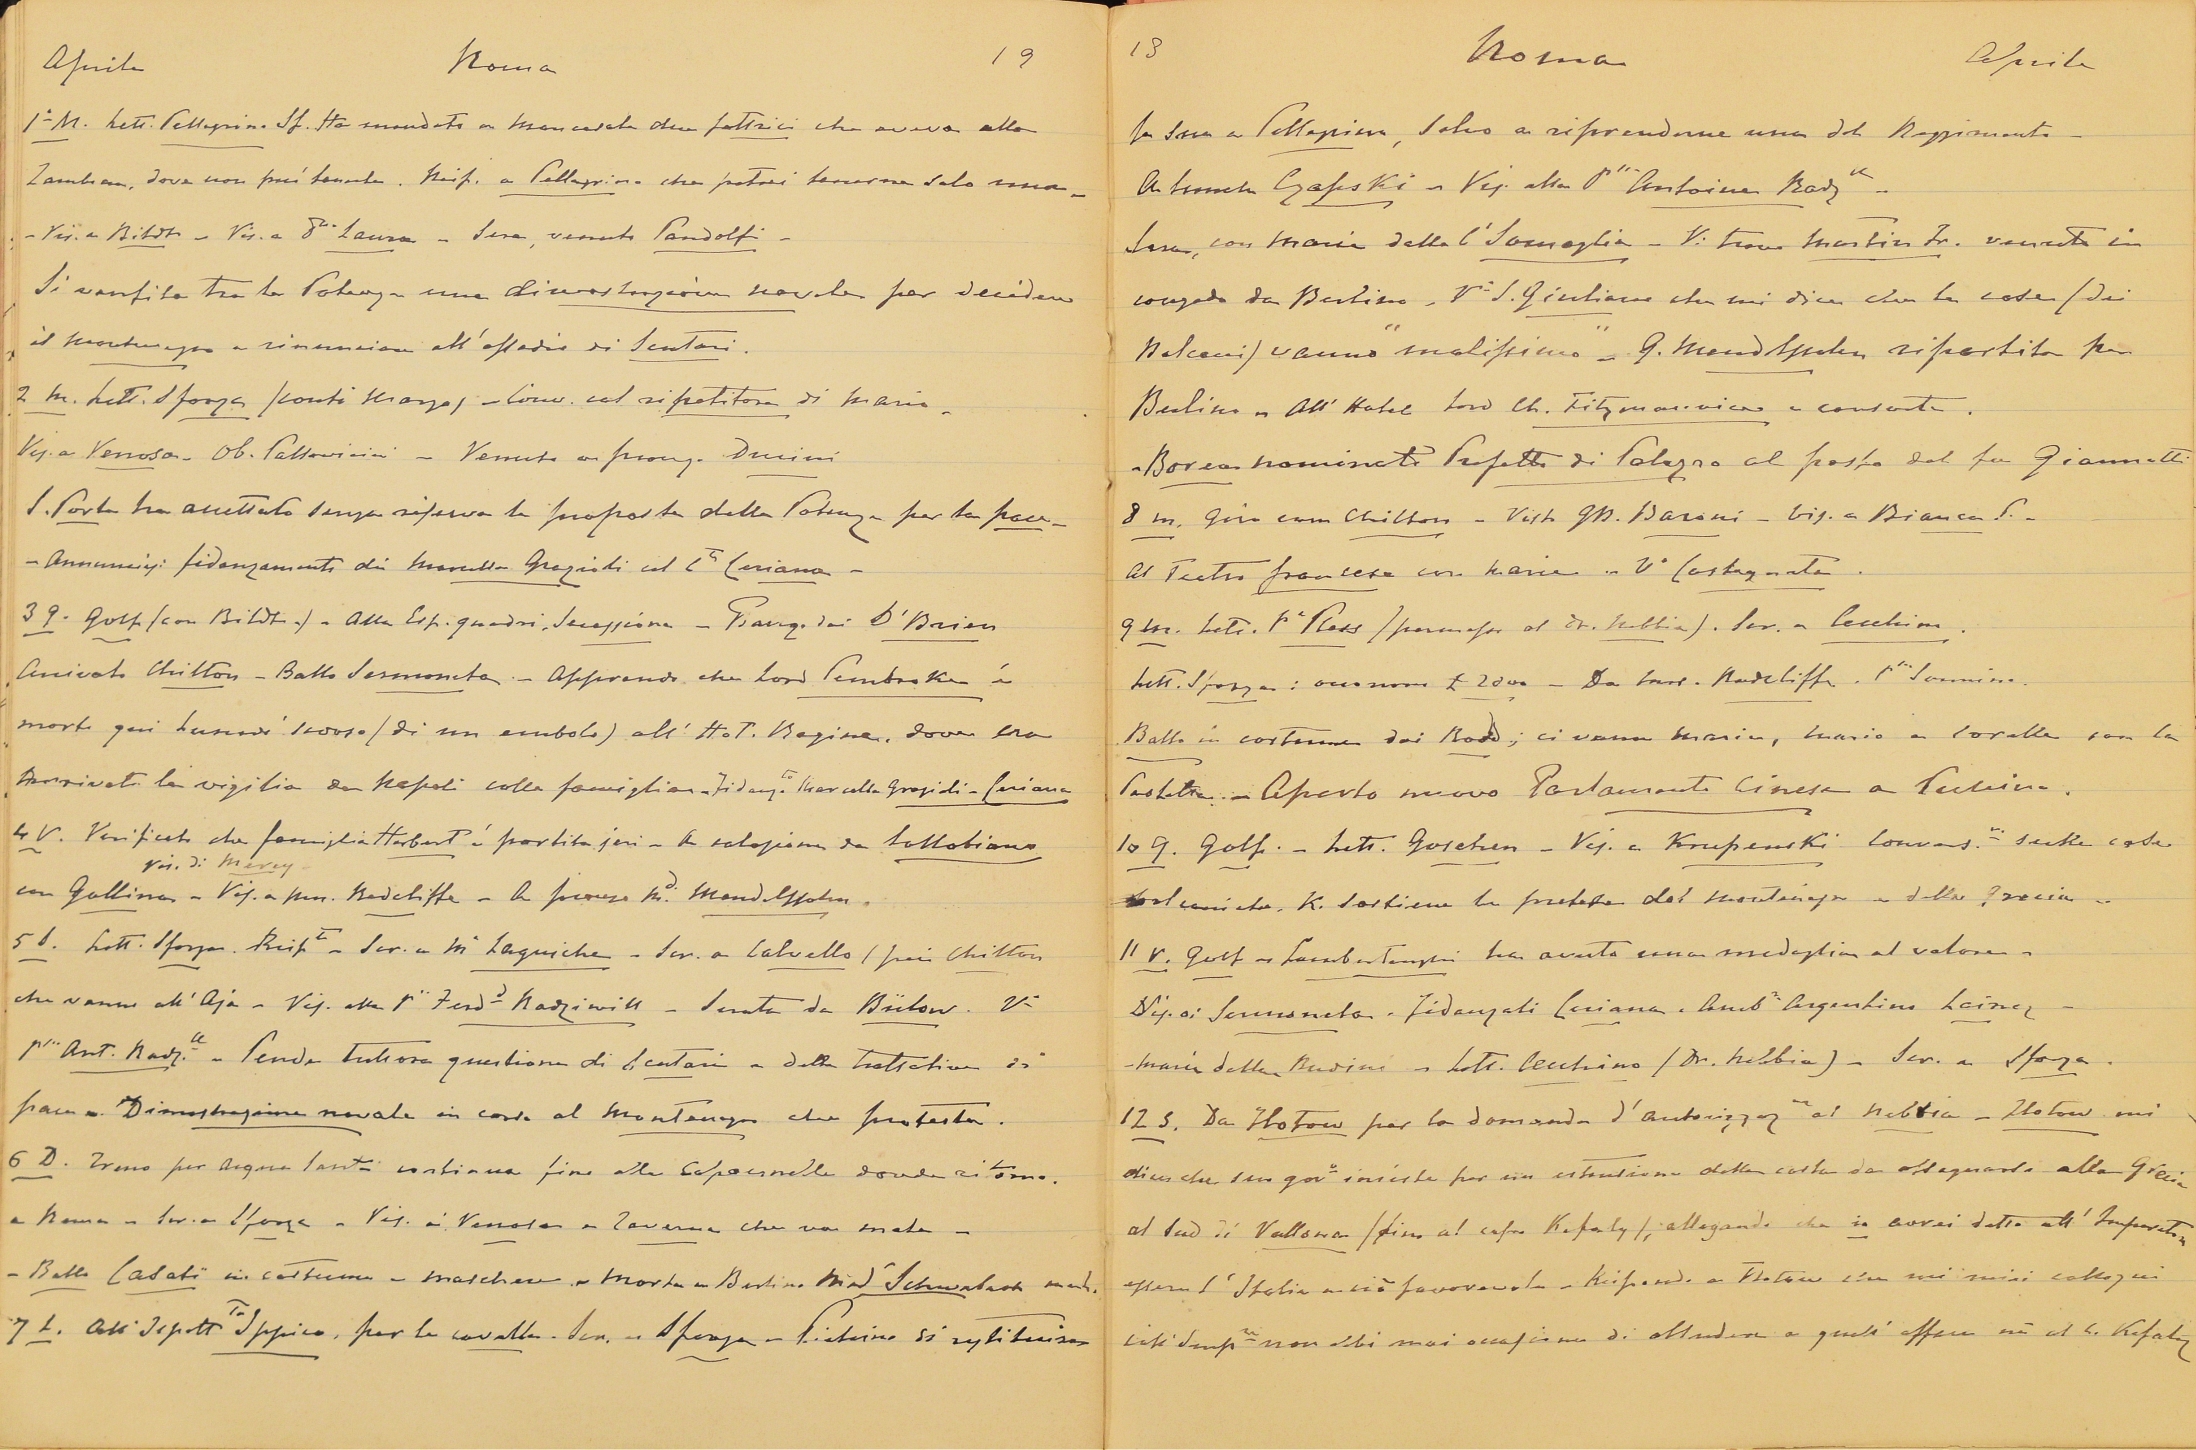 Aprile Roma 19
1° M. Lett. Pellegrino Sf. Ha mandato a due fattrici che aveva alla
dove non può tenerle. Risp. a Pellegrino che potrei tenerne solo una -
- Vis. a Bildt - Vis. a Laura - Sera, venuto Pandolfi -
Si ventila tra le Potenze una dimostrazione navale per decidere
il Montenegro a rinunciare all'assedio di Scutari.
2 M. Lett. Sforza (conti Marzo) - Conv. col ripetitore di Mario -
Vis. a Venosa - Ob. Pallavicini - Venuto a pranzo
S. Porta ha accettato senza riserva le proposte delle Potenze per la pace -
- Annunciasi fidanzamento di Marcella Grazioli col Cte Ceriana -
3 G. Golf (con Bildt) - Alla Esp. quadri, Secessione - Pranzo dai O'Brien
Arrivato Chilton - Ballo Sermoneta - Apprendo che Lord Pembroke è
morto qui Lunedì scorso (di un embolo) all'Hot. Regina, dove era
arrivato la vigilia da Napoli colla famiglia - Fidanz.to Marcella Grazioli - Ceriana
4 V. Verificato che famiglia Herbert è partita jeri - A colazione da Lottobiano
vis. di Merey
con Gallina - Vis. a Mrs. Radcliffe - A pranzo Md. Mendelssohn.
5 S. Lett. Sforza. Risp. - Scr. a Laguiche - Scr. a Calvello (per Chilton
che vanno all'Aja - Vis. alla Pssa Ferd.d Radziwill - Serata da Bülow. V°
Pssa Ant. Radz.ll - Pende tuttora questione di Scutari e delle trattative di
pace - Dimostrazione navale in corso al Montenegro che protesta.
6 D. Treno per Acqua Santa continua fino alle Capannelle donde ritorno
a Roma - Scr. a Sforza - Vis. ai Venosa e Taverna che va male -
- Ballo Casati in costume - maschere - Morta a Berlino Mad. Schwabach
7 L. All'Ispett.to Ippico, per le cavalle - Scr. a Sforza - si restituisca
13 Roma Aprile
la sua a Pellegrino, salvo a riprenderne una del Reggimento -
Czapski - Vis. alla Pssa Antoine Radz.ll -
Sera, con Maria dalla C. Somaglia - Vi trovo Martin Fr. venuto in
congedo da Berlino - V° S. Giuliano che mi dice che le cose (dei
Balcani) vanno "malissimo" - G. Mendelssohn ripartita per
Berlino - All'Hotel Lord Ch. Fitzmaurice e consorte.
- Borea nominato Prefetto di Palazzo al posto del fu Giannotti
8 M. Giro con Chilton - Visto GB. Baroni - Vis. a Bianca S. -
Al Teatro francese con Maria - V° Castagneto.
9 M. Lett. Pless (permesso al Dr. Nebbia). Scr. a Cecchino.
Lett. Sforza: £ 2000 - Da Mrs. Radcliffe. Pssa Sonnino.
Ballo in costume dai Rodd; ci vanno Maria, Mario e Coralla con la
- Aperto nuovo Parlamento Cinese a Pechino.
10 G. Golf. - Lett. Goschen - Vis. a Krupenski Convers.ne sulle cose
balcaniche. K. sostiene le pretese del Montenegro e della Grecia -
11 V. Golf - Lambertenghi ha avuto una medaglia al valore -
Vis. ai Sermoneta - Fidanzati Ceriana - Amb.re Argentino Lainez -
- Maria dalla Rudinì - Lett. Cecchino (Dr. Nebbia) - Scr. a Sforza.
12 S. Da Flotow per la domanda d'autorizzaz.ne al Nebbia - Flotow mi
dice che suo gov.o insiste per un'estensione della costa da assegnarsi alla Grecia
al Sud di Vallona (fino al capo Kefaly), allegando che io avrei detto all'Imperatore
essere l'Italia a ciò favorevole - Rispondo a Flotow che nei miei colloqui
coll'Imp.re non ebbi mai occasione di alludere a quest'affare nè al C. Kefaly